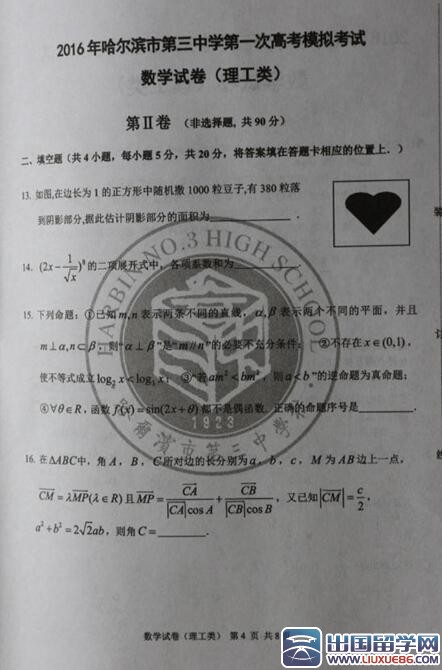 2016年哈尔滨市第三中学第一次高考模拟考试
数学试卷（理工类）
第Ⅱ卷 （非选择题, 共 90 分）
二、填空题（共 4 小题，每小题 5 分，共 20 分，将答案填在答题卡相应的位置上．）
13. 如图,在边长为 1 的正方形中随机撒 1000 粒豆子,有 380 粒落
到阴影部分,据此估计阴影部分的面积为____________．
14. (2x − 1/√x)⁸ 的二项展开式中，各项系数和为____________．
15. 下列命题：①已知 m,n 表示两条不同的直线，α,β 表示两个不同的平面，并且
m⊥α,n⊂β，则“α⊥β”是“m//n”的必要不充分条件； ②不存在 x∈(0,1)，
使不等式成立 log₂ x < log₃ x； ③“若 am² < bm²，则 a<b”的逆命题为真命题；
④∀θ∈R，函数 f(x)=sin(2x+θ) 都不是偶函数. 正确的命题序号是____________．
16. 在 ΔABC 中，角 A，B，C 所对边的长分别为 a，b，c，M 为 AB 边上一点，
CM = λMP(λ∈R) 且 MP = CA/(|CA|cos A) + CB/(|CB|cos B)，又已知 |CM| = c/2，
a² + b² = 2√2ab，则角 C = ____________．
HARBIN NO.3 HIGH SCHOOL
1923
哈尔滨市第三中学校
数学试卷（理工类） 第 4 页 共 8
出国留学网
WWW.LUXUE86.COM